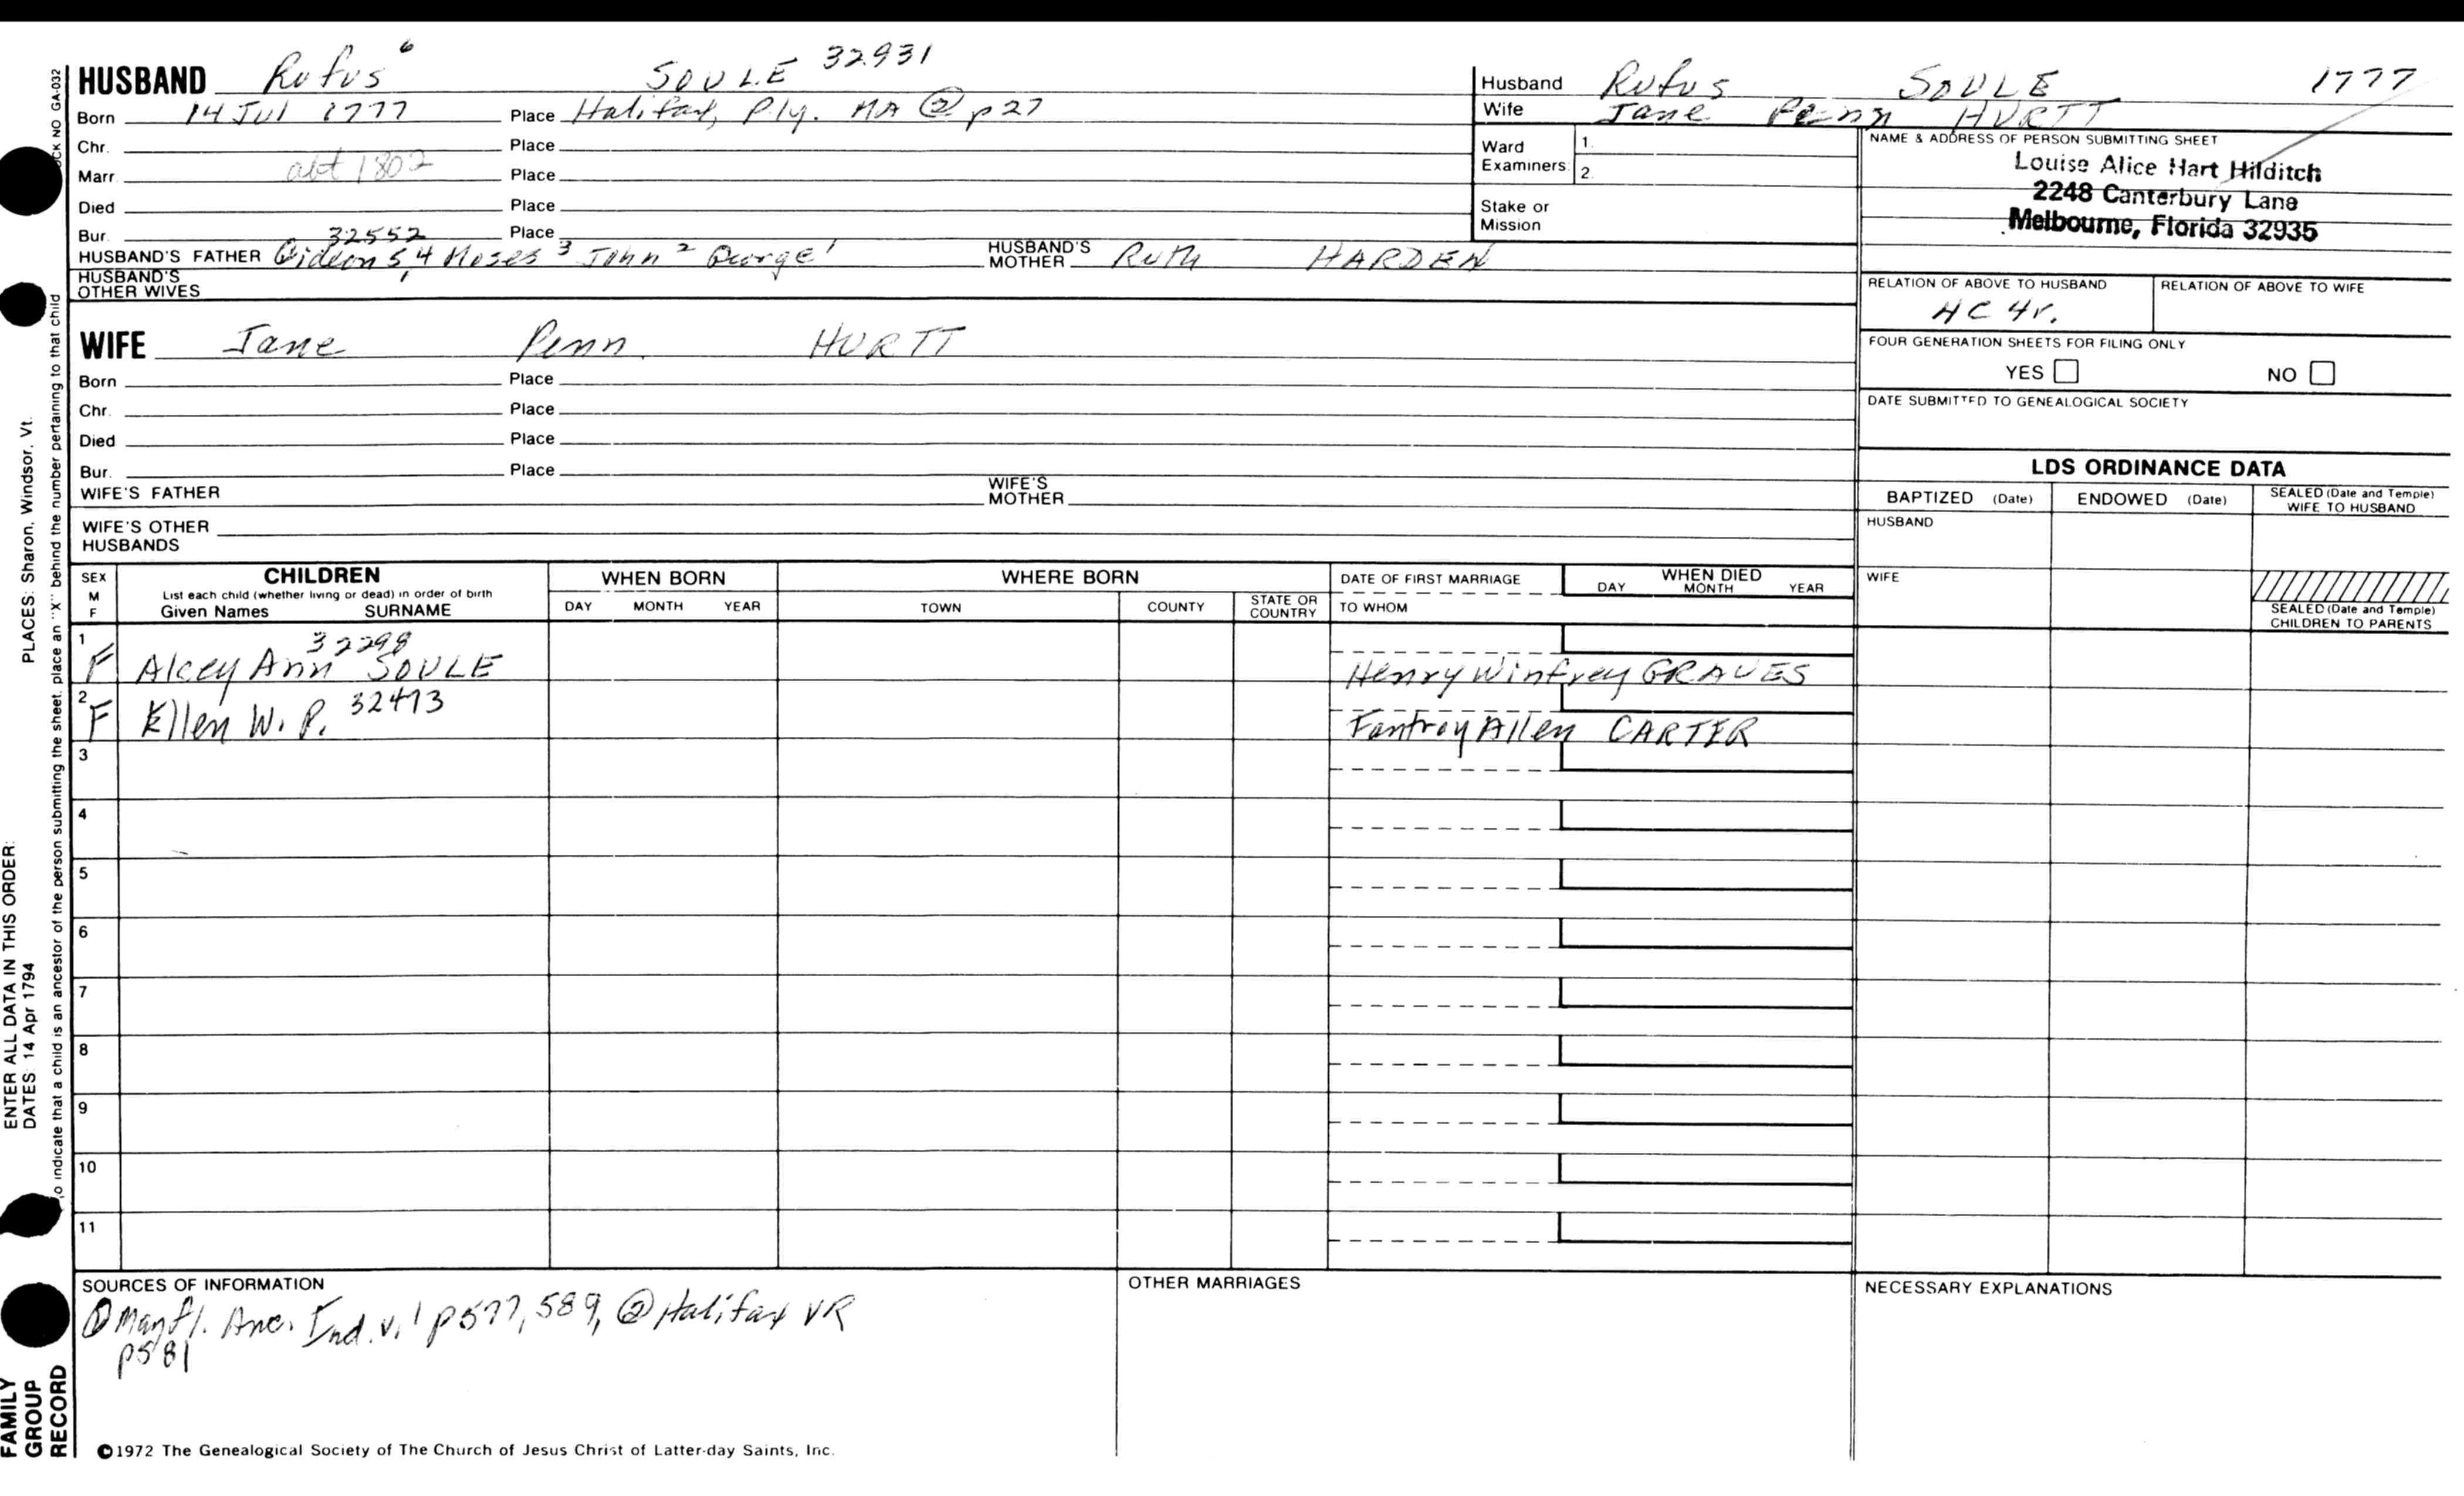 HUSBAND Rufus 6 SOULE 32931
Born 14 Jul 1777 Place Halifax, Ply. MA ② p27
Chr. Place
Marr. abt 1802 Place
Died Place
Bur. Place
32552
HUSBAND'S FATHER Gideon 5, 4 Moses 3 John 2 George 1 HUSBAND'S MOTHER Ruth HARDEN
HUSBAND'S OTHER WIVES
WIFE Jane Penn HURTT
Born Place
Chr. Place
Died Place
Bur. Place
WIFE'S FATHER WIFE'S MOTHER
WIFE'S OTHER HUSBANDS
Husband Rufus SOULE 1777
Wife Jane Penn HURTT
Ward Examiners: 1. 2.
Stake or Mission
NAME & ADDRESS OF PERSON SUBMITTING SHEET
Louise Alice Hart Hilditch
2248 Canterbury Lane
Melbourne, Florida 32935
RELATION OF ABOVE TO HUSBAND RELATION OF ABOVE TO WIFE
4C 4r.
FOUR GENERATION SHEETS FOR FILING ONLY
YES NO
DATE SUBMITTED TO GENEALOGICAL SOCIETY
LDS ORDINANCE DATA
BAPTIZED (Date) ENDOWED (Date) SEALED (Date and Temple) WIFE TO HUSBAND
HUSBAND
WIFE
SEALED (Date and Temple) CHILDREN TO PARENTS
SEX M F CHILDREN WHEN BORN WHERE BORN DATE OF FIRST MARRIAGE WHEN DIED
List each child (whether living or dead) in order of birth
Given Names SURNAME DAY MONTH YEAR TOWN COUNTY STATE OR COUNTRY TO WHOM DAY MONTH YEAR
32298
1 F Alcey Ann SOULE Henry Winfrey GRAVES
2 F Ellen W. P. 32473 Fantroy Allen CARTER
3
4
5
6
7
8
9
10
11
SOURCES OF INFORMATION
① Mayfl. Anc. Ind. v. 1 p577, 589, ② Halifax VR
p581
OTHER MARRIAGES
NECESSARY EXPLANATIONS
©1972 The Genealogical Society of The Church of Jesus Christ of Latter-day Saints, Inc.
FAMILY GROUP RECORD
ENTER ALL DATA IN THIS ORDER:
DATES: 14 Apr 1794 PLACES: Sharon, Windsor, Vt.
To indicate that a child is an ancestor of the person submitting the sheet, place an "X" behind the number pertaining to that child
NO GA-032